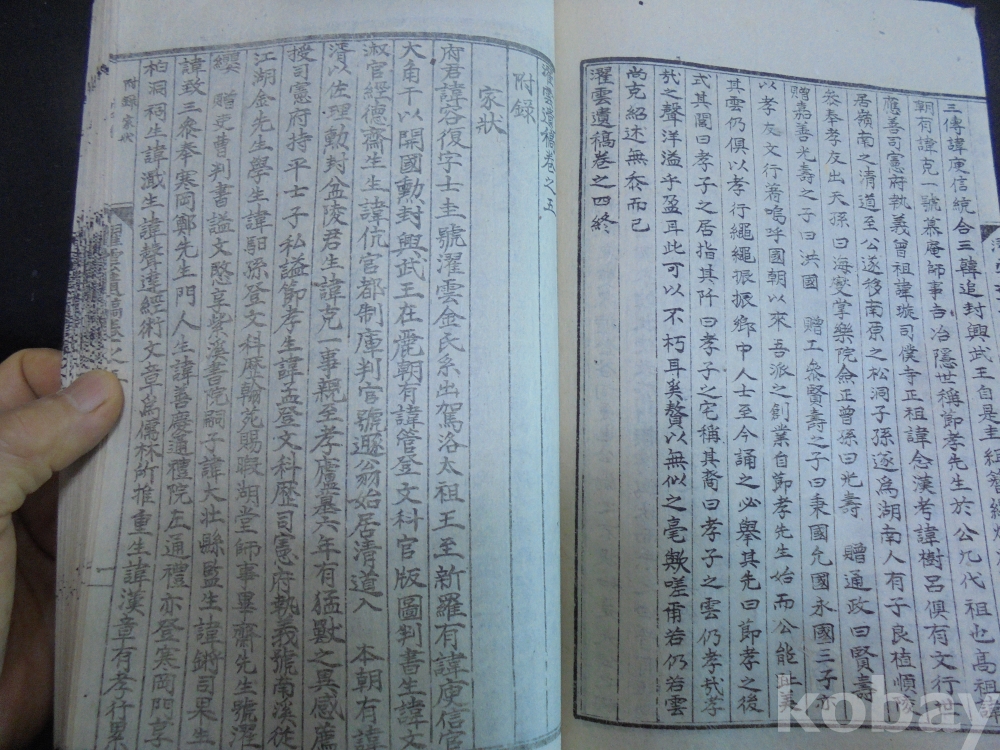 三傳諱庾信統合三韓追封興武王自是圭組
朝有諱克一號慕庵師事吉冶隱世稱節孝先生於公九代祖也高祖諱
應善司憲府執義曾祖諱璇司僕寺正祖諱念漢考諱樹呂俱有文行
居嶺南之清道至公遂移南原之松洞子孫遂爲湖南人有子良植順
參奉孝友出天孫曰海 掌樂院僉正曾孫曰光壽 贈通政曰賢壽
贈嘉善光壽之子曰洪國 贈工參賢壽之子曰秉國允國永國三子亦
以孝友文行著嗚呼國朝以來吾派之創業自節孝先生始而公能趾美
其雲仍俱以孝行繩繩振振鄉中人士至今誦之必舉其先曰節孝之後
式其閭曰孝子之居指其阡曰孝子之宅稱其裔曰孝子之雲仍孝哉孝
哉之聲洋溢乎盈耳此可以不朽耳奚贅以無似之毫歟嗟甫若仍若雲
尚克紹述無忝而已
濯雲遺稿卷之四終
濯雲遺稿卷之五
附録
家狀
府君諱容復字士圭號濯雲金氏系出駕洛太祖王至新羅有諱庾信官
大角干以開國勳封興武王在麗朝有諱管登文科官版圖判書生諱文
淑官經德齋生生諱伉官都制庫判官號遯翁始居清道入 本朝有諱
濱以佐理勳封金陵君生諱克一事親至孝廬墓六年有猛獸之異感薦
授司憲府持平士子私謚節孝生諱孟登文科歷司憲府執義號南溪從
江湖金先生學生諱馹孫登文科歷翰苑賜暇湖堂師事畢齋先生號濯
纓 贈吏曹判書謚文愍享紫溪書院嗣子諱大壯縣監生諱鏘司果生
諱致三參奉寒岡鄭先生門人生諱善慶通禮院左通禮亦登寒岡門享
柏洞祠生諱濈生諱聲達經術文章爲儒林所推重生諱漢章有孝行累
附録 家狀
濯雲遺稿卷之五